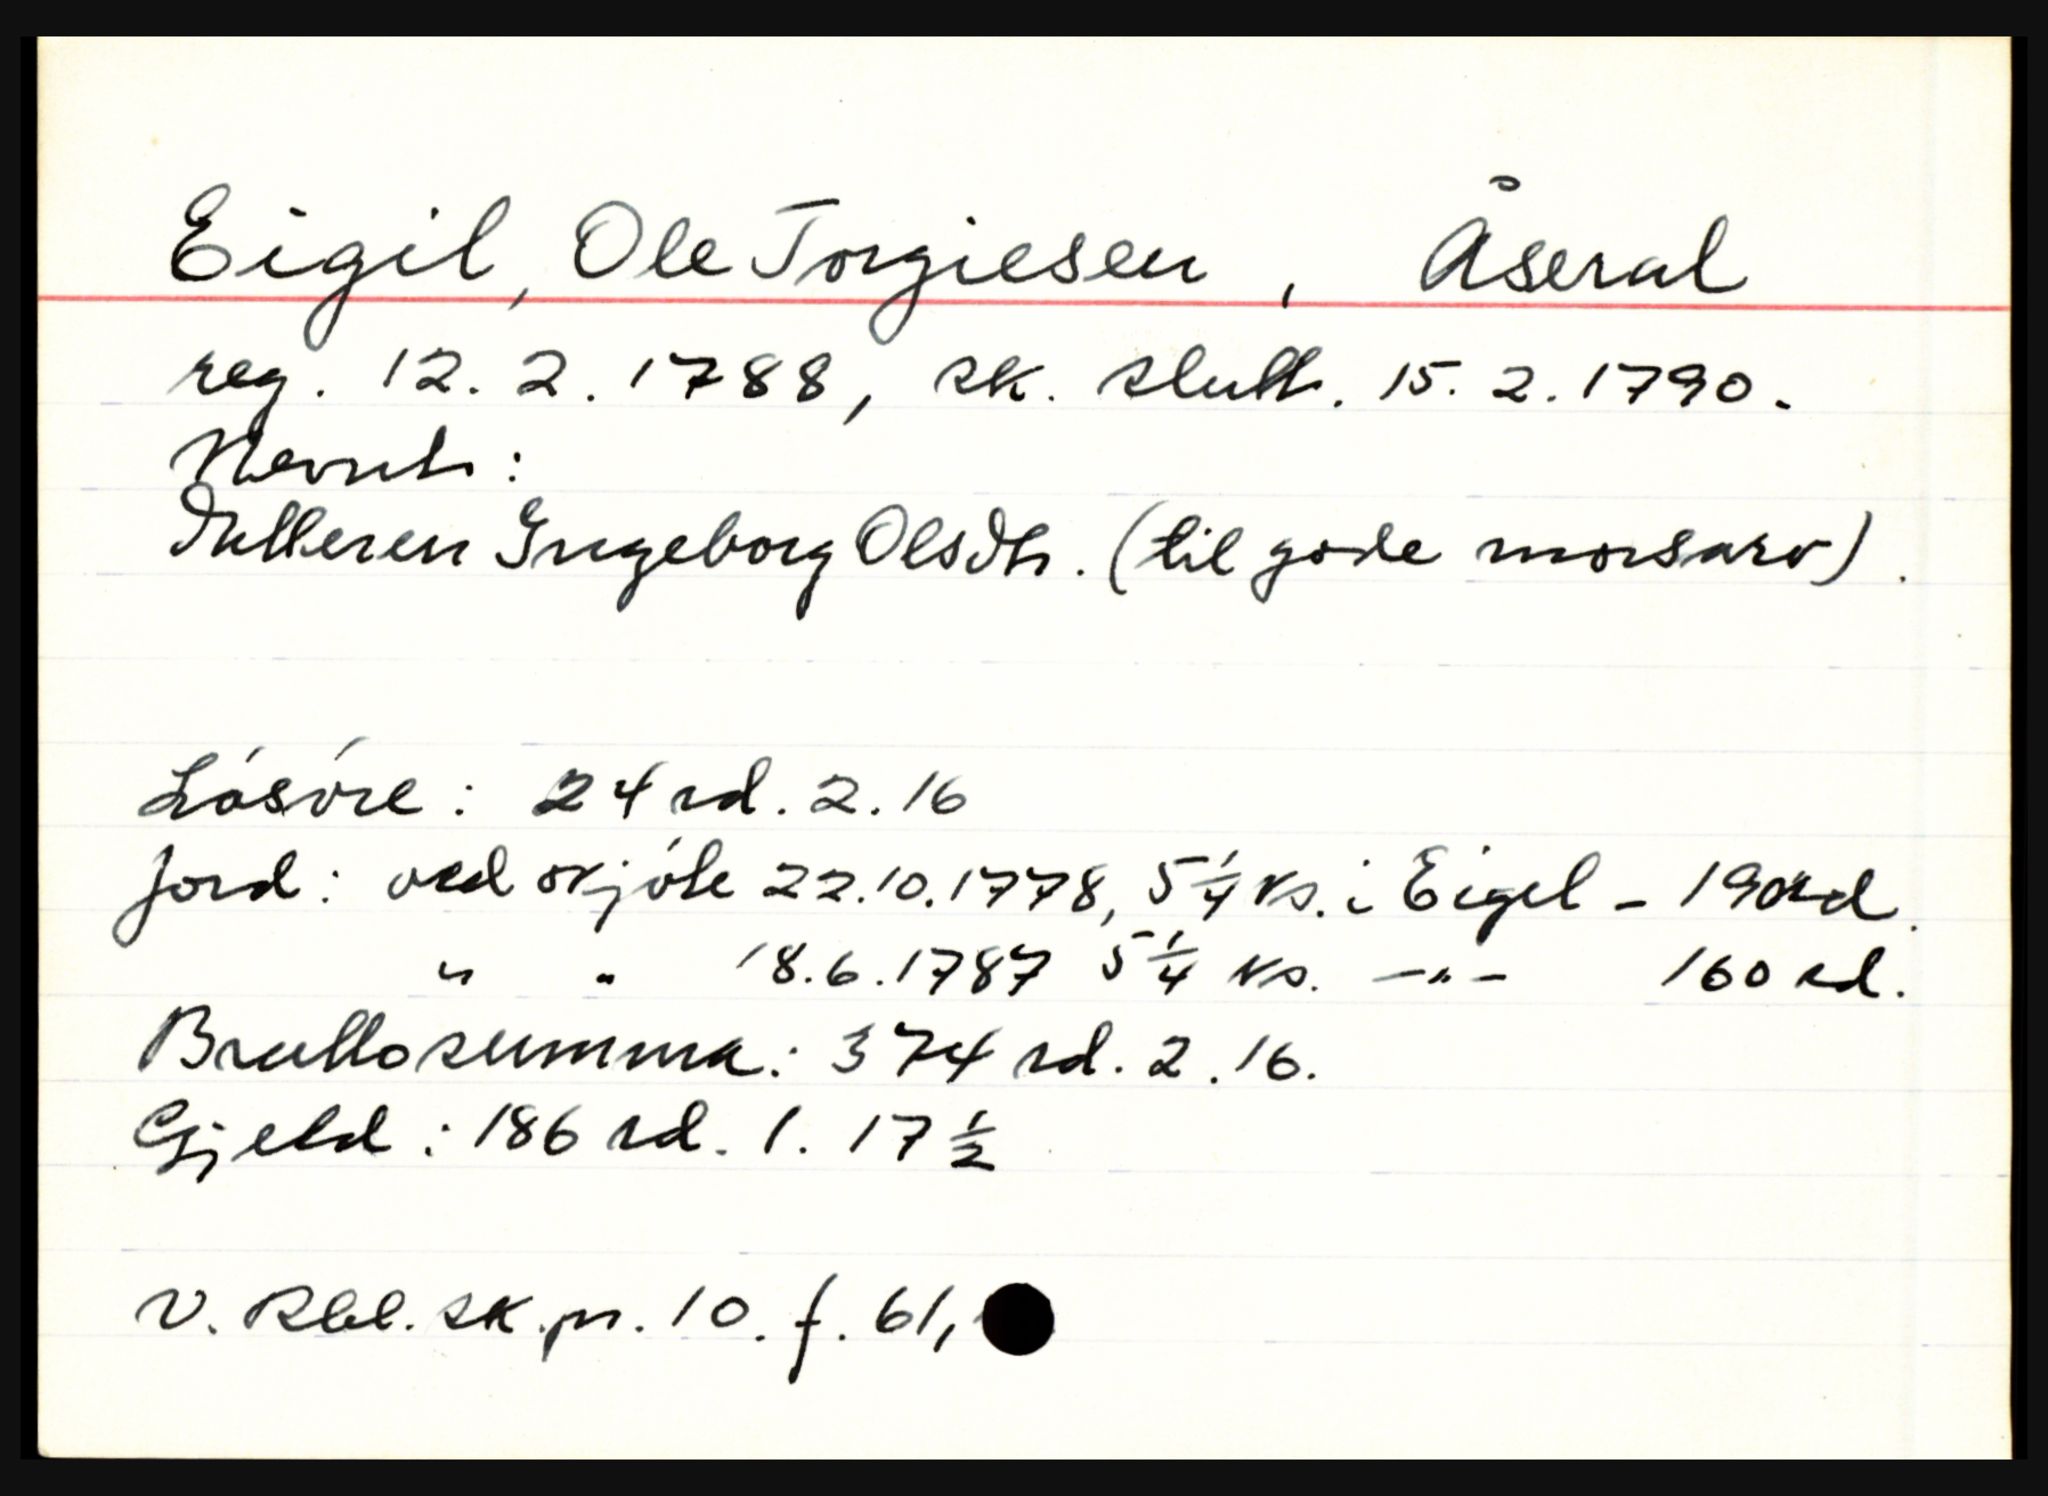 Eigil, Ole Torgiesen, Åseral
reg. 12. 2. 1788, sk. slutt. 15. 2. 1790.
Nevnt:
Datteren Ingeborg Olsdtr. (til gode morsarv).
Lósóre: 24 rd. 2. 16
Jord: ved skjóte 22.10.1778, 5 1/4 ks. i Eigel - 190 rd.
" " 18.6.1787 5 1/4 ks. -"- 160 rd.
Bruttosumma: 374 rd. 2. 16.
Gjeld: 186 rd. 1. 17 1/2
V. Rbl. sk.pr. 10. f. 61,